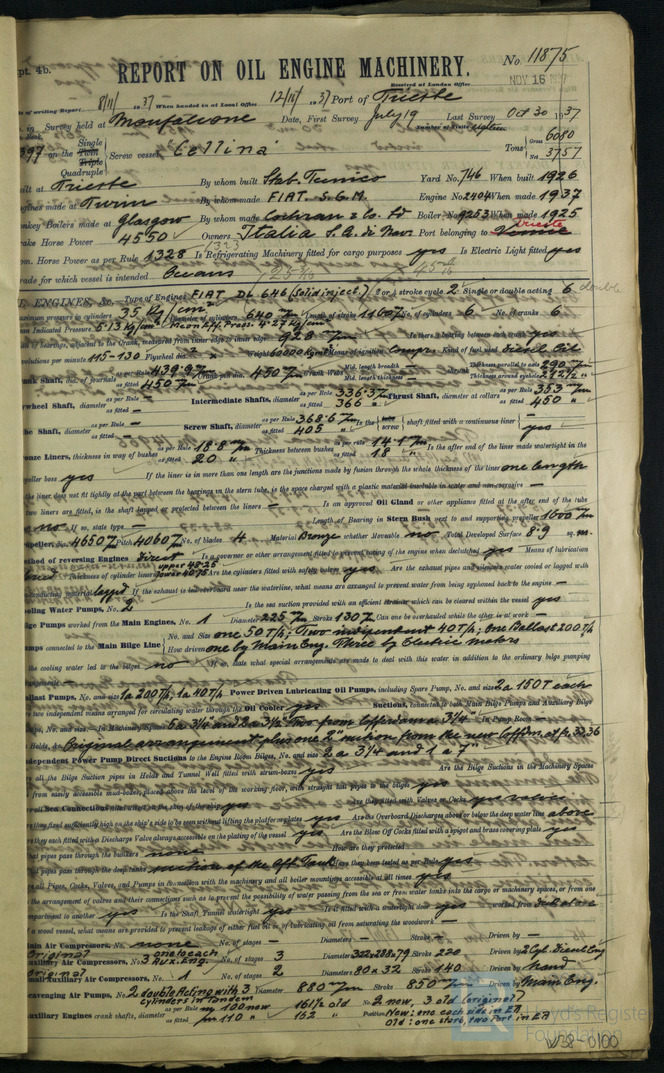 pt. 4b.
REPORT ON OIL ENGINE MACHINERY.
No. 11875
Received at London Office NOV 16 1937
of writing Report 8/11/ 1937 When handed in at Local Office 12/11/ 1937 Port of Trieste
in Survey held at Monfalcone Date, First Survey July 19 Last Survey Oct 30 1937
Number of Visits eighteen
on the Single Twin Triple Quadruple Screw vessel "Cellina" Tons Gross 6080 Net 3757
ilt at Trieste By whom built Stab. Tecnico Yard No. 746 When built 1926
ngines made at Turin By whom made FIAT. S.G.M. Engine No. 2404 When made 1937
nkey Boilers made at Glasgow By whom made Cochran & Co. Ld Boiler No. 9253 When made 1925
rake Horse Power 4550 Owners Italia S.A. di Nav. Port belonging to Venice Trieste
om. Horse Power as per Rule 1328 1323 Is Refrigerating Machinery fitted for cargo purposes yes Is Electric Light fitted yes
rade for which vessel is intended Oceans
L ENGINES, &c. Type of Engines FIAT DL 646 (Solid inject.) 2 or 4 stroke cycle 2 Single or double acting double
mum pressure in cylinders 35 Kg/cm² Diameter of cylinders 640 m/m Length of stroke 1160 m/m No. of cylinders 6 No. of cranks 6
n Indicated Pressure 5.13 Kg/cm² Mean Eff. Press. 4.27 Kg/cm²
of bearings, adjacent to the Crank, measured from inner edge to inner edge 928 m/m Is there a bearing between each crank yes
volutions per minute 115-130 Flywheel dia. Weight Means of ignition Compr. Kind of fuel used Diesel Oil
ank Shaft, dia. of journals as per Rule 439.97 m/m as fitted 450 m/m Crank pin dia. 450 m/m Crank Webs Mid. length breadth – Mid. length thickness – Thickness parallel to axis 290 m/m Thickness around eyehole 212½
wheel Shaft, diameter as per Rule – as fitted – Intermediate Shafts, diameter as per Rule 336.37 as fitted 366 Thrust Shaft, diameter at collars as per Rule 353 m/m as fitted 450
be Shaft, diameter as per Rule – as fitted – Screw Shaft, diameter as per Rule 368.6 m/m as fitted 405 Is the tube screw shaft fitted with a continuous liner yes
onze Liners, thickness in way of bushes as per Rule 18.8 m/m as fitted 20 Thickness between bushes as per rule 14.1 m/m as fitted 18 Is the after end of the liner made watertight in the
peller boss yes If the liner is in more than one length are the junctions made by fusion through the whole thickness of the liner one length
the liner does not fit tightly at the part between the bearings in the stern tube, is the space charged with a plastic material insoluble in water and non-corrosive –
two liners are fitted, is the shaft lapped or protected between the liners – Is an approved Oil Gland or other appliance fitted at the after end of the tube
no If so, state type – Length of Bearing in Stern Bush next to and supporting propeller 1600 m/m
opeller, dia. 4650 m/m Pitch 4060 m/m No. of blades 4 Material Bronze whether Moveable no Total Developed Surface 8.9 sq. m.
ethod of reversing Engines direct Is a governor or other arrangement fitted to prevent racing of the engine when declutched yes Means of lubrication
forced Thickness of cylinder liners upper 48.25 lower 40.75 Are the cylinders fitted with safety valves yes Are the exhaust pipes and silencers water cooled or lagged with
conducting material lagged If the exhaust is led overboard near the waterline, what means are arranged to prevent water from being syphoned back to the engine –
ooling Water Pumps, No. 2 Is the sea suction provided with an efficient strainer which can be cleared within the vessel yes
lge Pumps worked from the Main Engines, No. 1 Diameter 225 m/m Stroke 130 m/m Can one be overhauled while the other is at work –
umps connected to the Main Bilge Line No. and Size one 50 T/h; Two independent 40 T/h; one Ballast 200 T/h
How driven one by Main Eng. Three by Electric motors
the cooling water led to the bilges no If so, state what special arrangements are made to deal with this water in addition to the ordinary bilge pumping
llast Pumps, No. and size 1 a 200 T/h, 1 a 40 T/h Power Driven Lubricating Oil Pumps, including Spare Pump, No. and size 2 a 150 T each
two independent means arranged for circulating water through the Oil Cooler yes Suctions, connected to both Main Bilge Pumps and Auxiliary Bilge
mps, No. and size:—In Machinery Spaces 5 a 3¼" and 2 a 3½" Two from Cofferdam a 3¼" In Pump Room –
Holds, &c. Original arrangement plus one 2" suction from the new Coffdm. at fr. 33.36
dependent Power Pump Direct Suctions to the Engine Room Bilges, No. and size 2 a 3¼ and 1 a 7"
all the Bilge Suction pipes in Holds and Tunnel Well fitted with strum-boxes yes Are the Bilge Suctions in the Machinery Spaces
from easily accessible mud-boxes, placed above the level of the working floor, with straight tail pipes to the bilges yes
all Sea Connections yes Are they fitted with Valves or Cocks yes valves
they fixed sufficiently high on the ship's side to be seen without lifting the platform plates yes Are the Overboard Discharges above or below the deep water line above
they each fitted with a Discharge Valve always accessible on the plating of the vessel yes Are the Blow Off Cocks fitted with a spigot and brass covering plate yes
at pipes pass through the bunkers none How are they protected
at pipes pass through the deep tanks suction of the Aft Tank Have they been tested as per Rule yes
all Pipes, Cocks, Valves, and Pumps in connection with the machinery and all boiler mountings accessible at all times yes
the arrangement of valves and their connections such as to prevent the possibility of water passing from the sea or from water tanks into the cargo or machinery spaces, or from one
mpartment to another yes Is the Shaft Tunnel watertight yes Is it fitted with a watertight door yes worked from deck above
a wood vessel, what means are provided to prevent leakage of either fuel oil or lubricating oil from saturating the woodwork –
ain Air Compressors, No. none No. of stages – Diameters – Stroke – Driven by –
Original one to each
uxiliary Air Compressors, No. 3 Aux. Eng. No. of stages 3 Diameters 322x288x79 Stroke 220 Driven by 2 Cyl. Diesel Eng
Original
mall Auxiliary Air Compressors, No. 1 No. of stages 2 Diameters 80 x 32 Stroke 140 Driven by hand
cavenging Air Pumps, No. 2 double Acting with 3 cylinders in tandem Diameter 880 m/m Stroke 850 m/m Driven by Main Eng.
uxiliary Engines crank shafts, diameter as per Rule 100 new 161¾ old as fitted 110 162 No. 2 new, 3 old (original)
Position New: one each side in ER Old: one starb., two Port in ER
Lloyd's Register Foundation
W38-0100